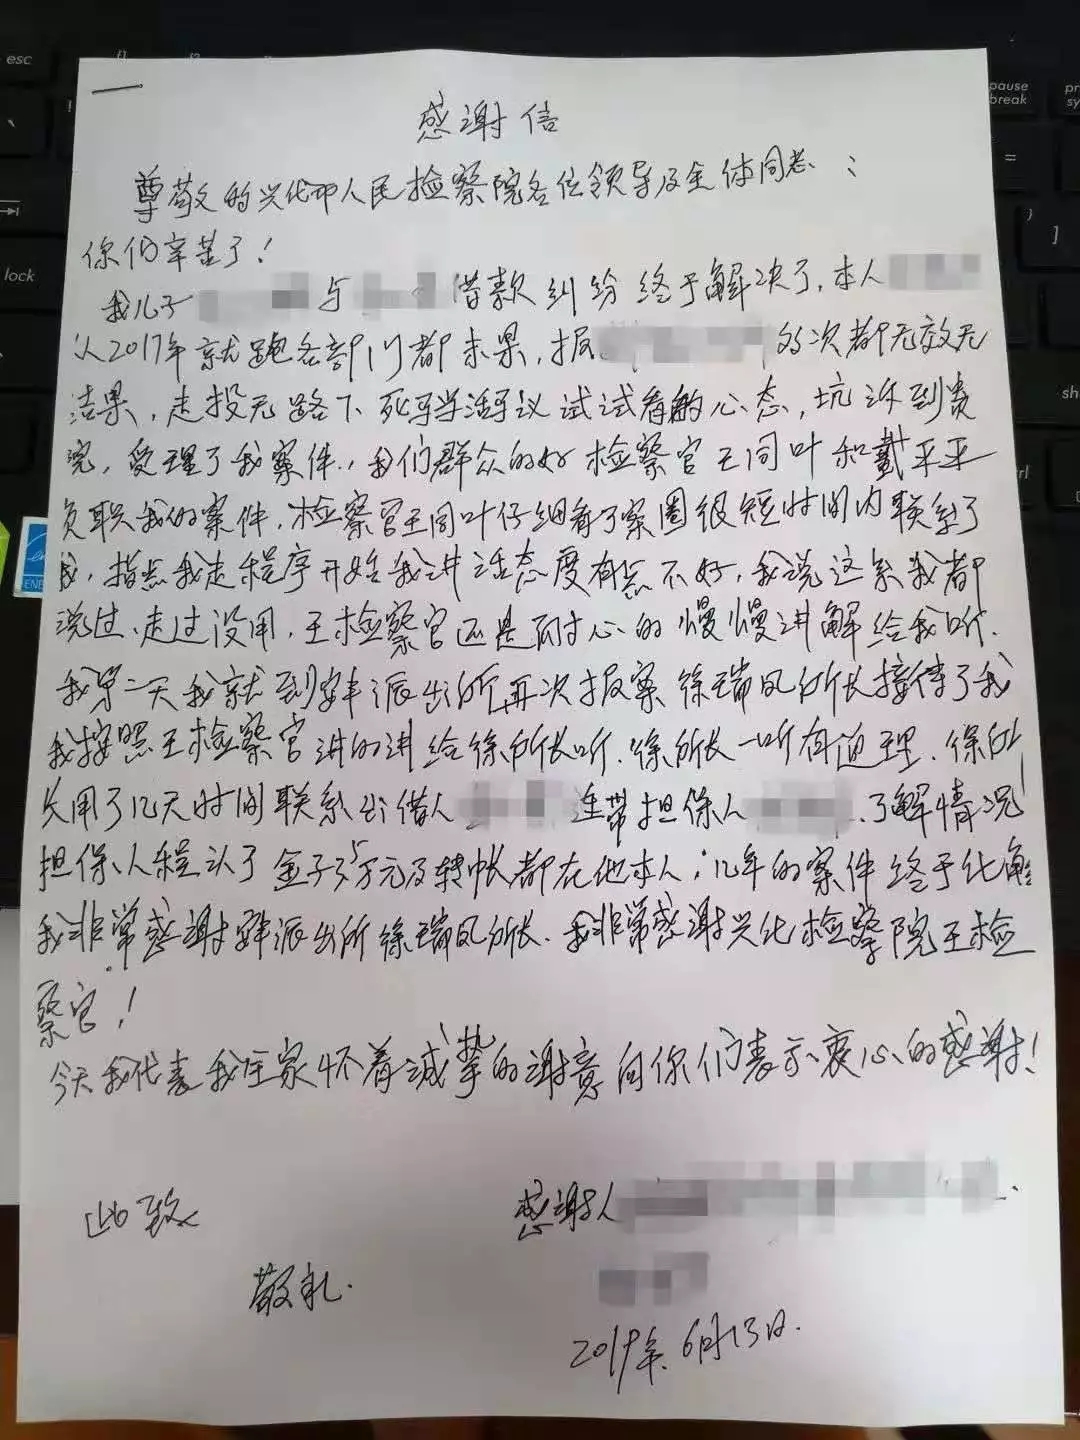 esc
f1
pause
break
lock
感谢信
尊敬的兴化市人民检察院各位领导及全体同志：
你们辛苦了！
我儿子 与 借款纠纷终于解决了，本人
从2017年就跑各部门都未果，报 多次都无效无
结果，走投无路下 试试看的心态，坑诉到贵
院，受理了我案件，我们群众的好检察官王同叶和戴平平
负职我的案件，检察官王同叶仔细看了案圈很短时间内联系了
我，指点我走程序开始我讲话态度有点不好，我说这系我都
说过、走过没用，王检察官还是耐心的慢慢讲解给我听、
我第二天我就到 派出所再次报案徐瑞凤所长接待了我
我按照王检察官讲的讲给徐所长听、徐所长一听有道理、徐所
长用了几天时间联系出借人 连带担保人 、了解情况！
担保人程认了 万元及转帐都在他本人；几年的案件终于化解
我非常感谢 派出所徐瑞凤所长、我非常感谢兴化检察院王检
察官！
今天我代表我全家怀着诚挚的谢意向你们表示衷心的感谢！
此致
感谢人
敬礼.
2019年6月13日.